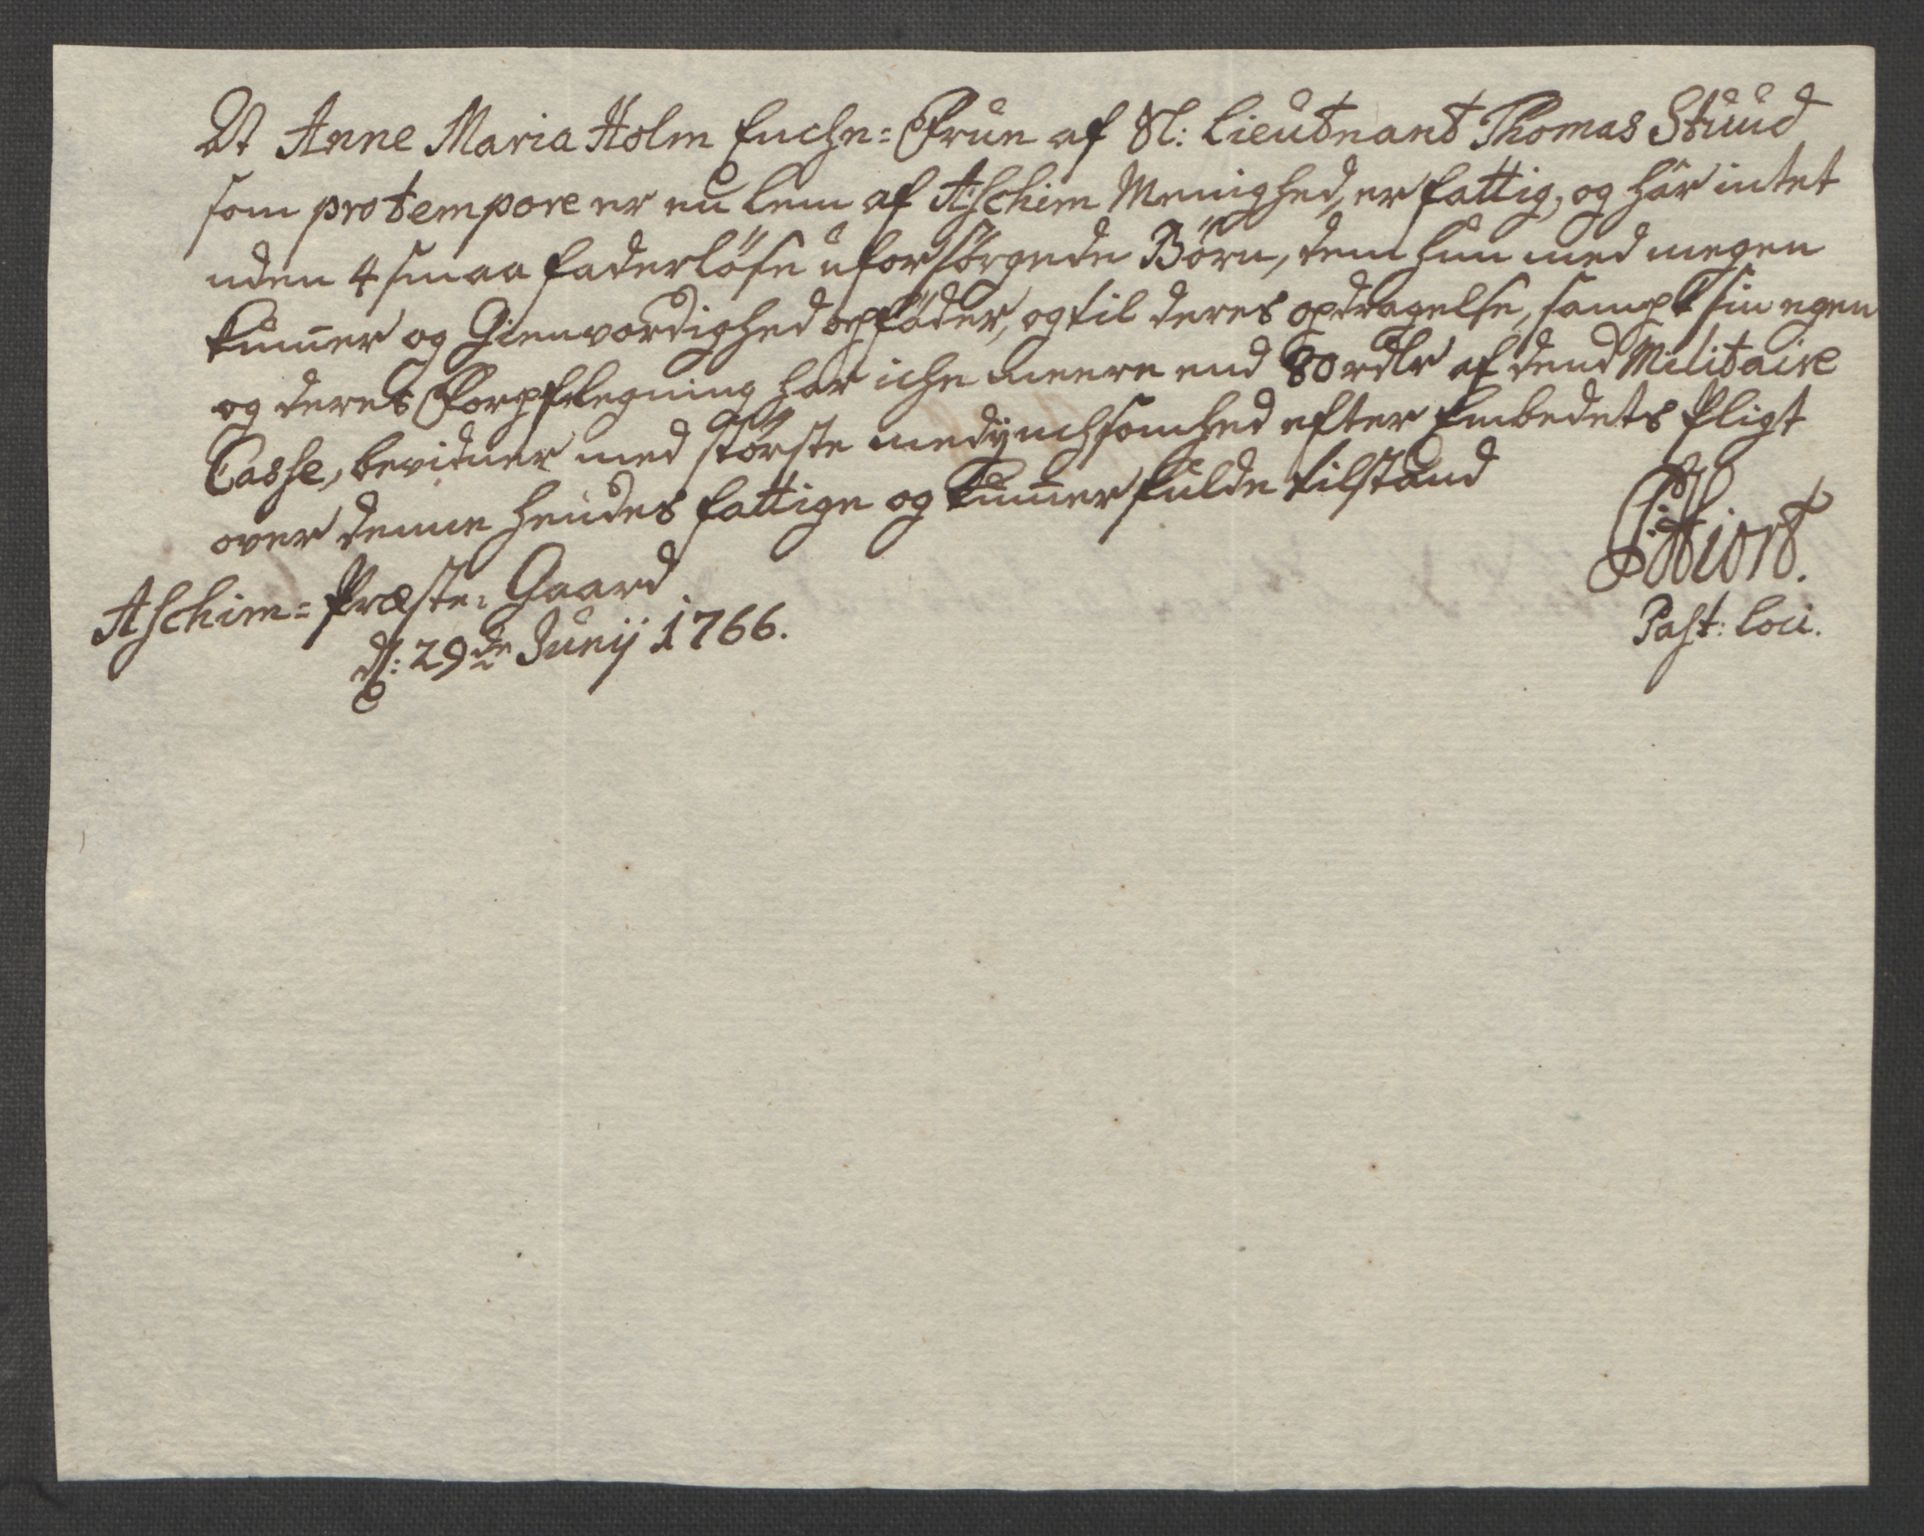 At Anne Maria Holm Enche=Frue af Sl: Lieutnant Thomas Stuud
som pro tempore er eu lem af Aschim Menighed, er fattig, og har intet
uden 4 smaa faderløse uforsørgede Børn, dem hun med megen
Kum̄er og Gienvordighed opføder, og til deres opdragelse, sampt sin egen
og deres Forpflegning har iche meere end 80 rdlr af dend Militaire
Casse, bevidner med største medynchsomhed efter Embedets Pligt
over denne hendes fattige og Kum̄erfulde tilstand
Aschim=Præste=Gaard
d: 29de Junij 1766.
Hiort.
Past: Loci.